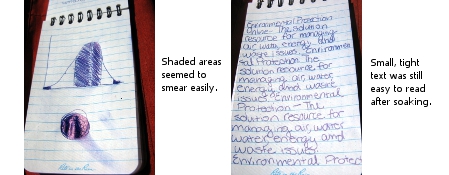 Shaded areas
seemed to
smear easily.
Environmental Protection
Online - The solution
resource for managing
air, water, energy, and
waste issues. Environmen
tal Protection The
solution resource for
managing air, water,
energy and waste
issues. Environmental
Protection - The
solution resource for
managing air, water
water, energy and
waste issues.
Environmental Protect
Small, tight
text was still
easy to read
after soaking.